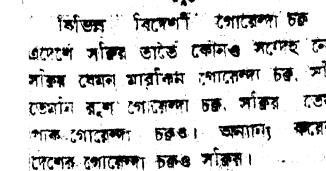 বিভিন্ন বিদেশী গোয়েন্দা চক্র
এদেশে সক্রিয় তাতে কোনও সন্দেহ নে
সক্রিয় যেমন মারকিন গোয়েন্দা চক্র, স
তেমনি রুশ গোয়েন্দা চক্র, সক্রিয় তে
পাক গোয়েন্দা চক্রও। অন্যান্য কয়ে
দেশের গোয়েন্দা চক্রও সক্রিয়।